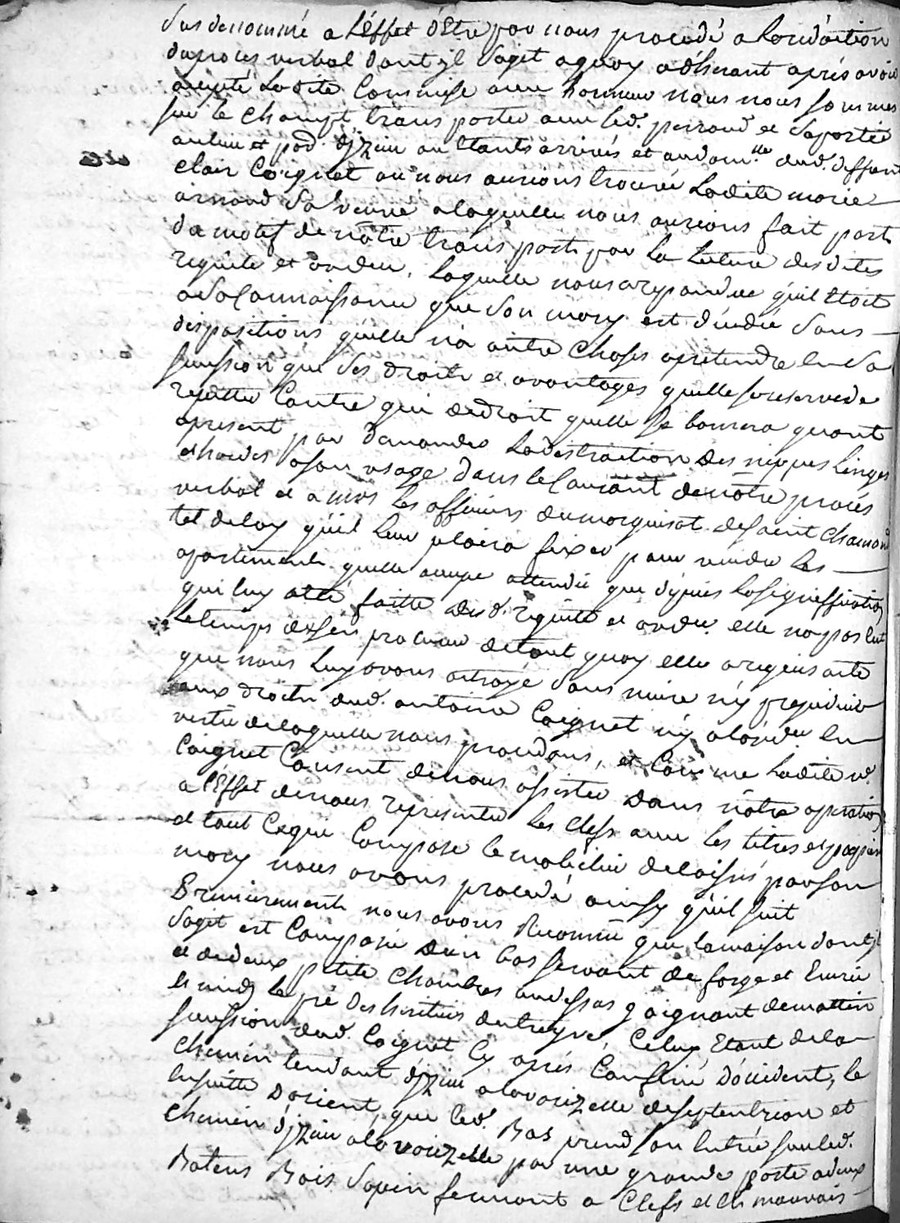 sus denommé a l'Effet d'Etre par nous procedé a la redaction
du proces verbal dont il sagit a quoy adherant aprés avoir
accepté ladite Commise avec honneur nous nous sommes
sur le champt transportés avec led. perraud et
audit et aud. izieu ou Etants arrivés et au dom.lle dud. deffunt
clair Coignet ou nous aurions trouvée Ladite marie
arnaud sa veuve a laquelle nous aurions fait part
du motif de nôtre transport par la lecture desdites
requete et ordce. laquelle nous a repondue quil Etoit
a sa Connaissance que son mary est décédé sans
dispositions quelle n'a autre choses a pretendre en sa
succession que ses droits et avantages quelle se reserve de
repetter Contre qui de droit quelle se bornera quant
apresent par demander La distraction des nippes linges
et hardes a son usage dans le Courant de nôtre procés
verbal et a mrs les officiers du marquisat de saint chamond
tel delay quil leur plaira fixer pour vuider les
apartements quelle occupe attendu que depuis la signiffication
qui luy a été faitte desd. requete et ordce. elle n'a pas eut
le temps de s'en procurer de tout quoy elle a requis acte
que nous luy avons octroyé sans nuire n'y prejudicier
aux droits dud. antoine Coignet n'y a lordce en
vertu de laquelle nous procedons, et Comme Ladite ve.
Coignet Consent de nous assister dans nôtre operation
a l'Effet de nous representer les clefs avec les titres et papiers
et tout Ceque Compose le mobilier delaissés par son
mary nous avons procedé ainsy quil suit
Premierement nous avons Reconnu que la maison dont il
sagit est Composée d'un bas servant de forge et Ecurie
et de deux petite chambres au dessus joignant de mattin
et midy le pré des heritiers Celuy Etant de la
succession dud. Coignet Cy aprés Confiné d'occident, le
chemin tendant d'izieu a lavarizelle de septentrion et
ensuitte Dorient, que led. Bas prend son Entrée sur led.
chemin d'izieu a lavarizelle par une grande porte a deux
Batens Bois sapin fermant a Clefs et en mauvais